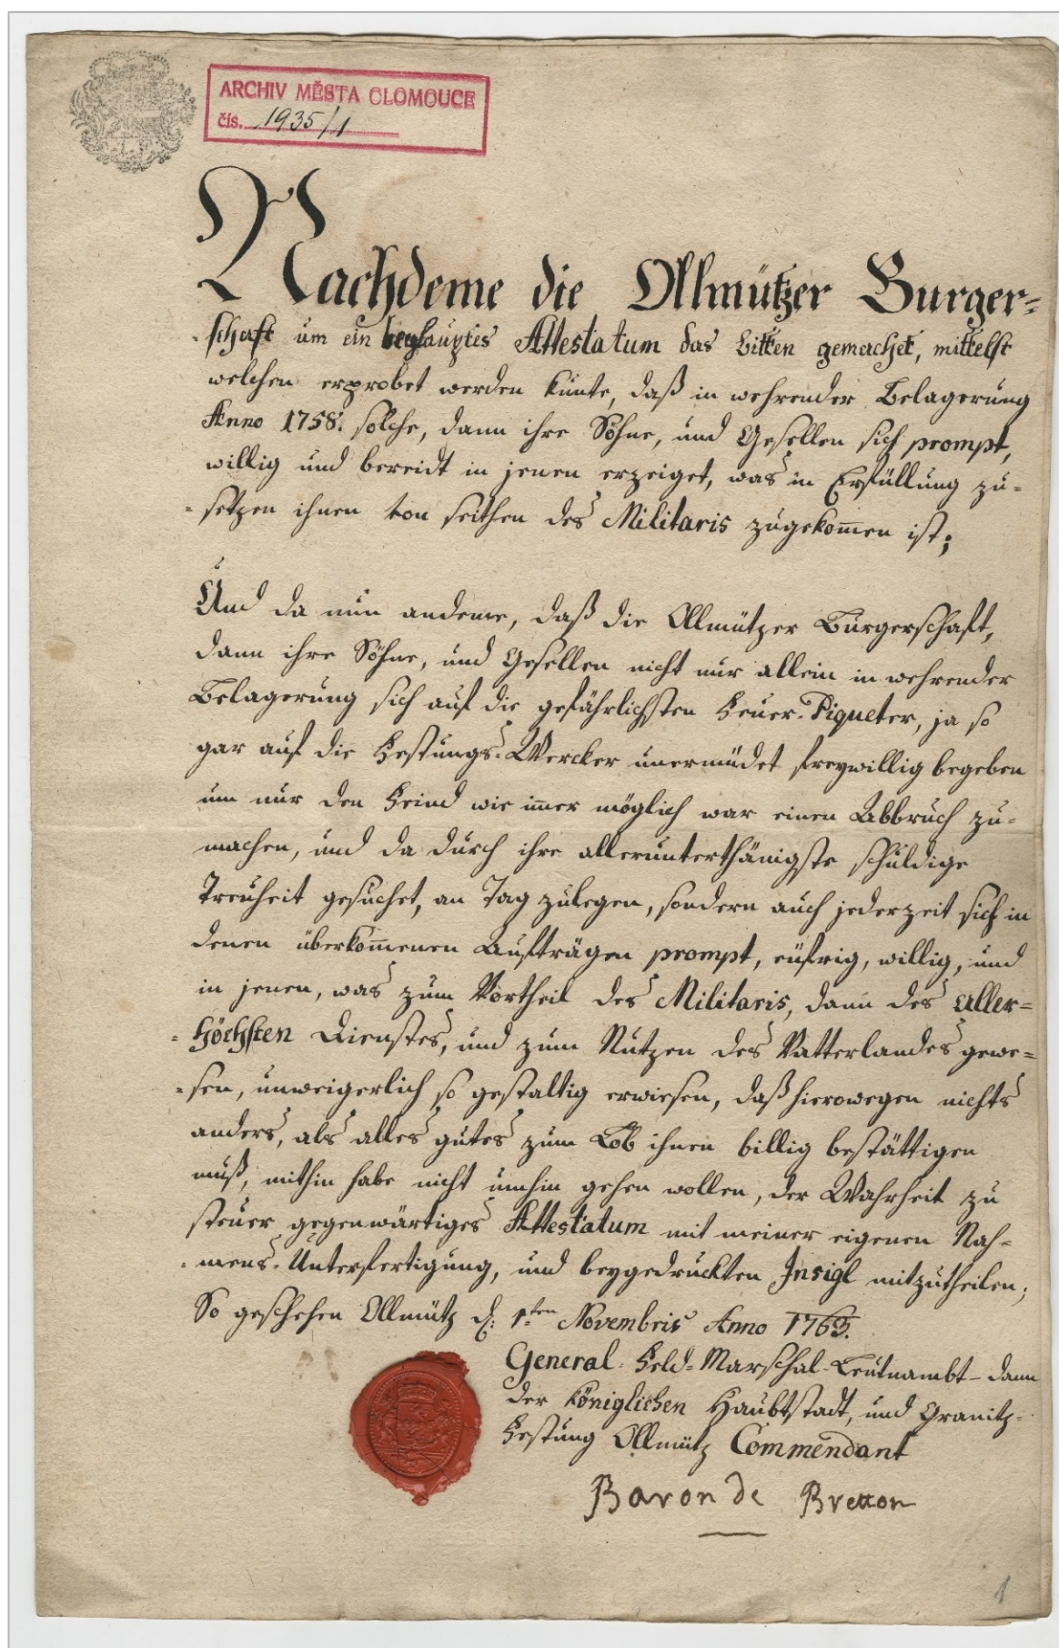 ARCHIV MĚSTA OLOMOUCE
čís. 1935/1
Nachdeme die Ollmützer Burger-
-schafft um ein Attestatum das bitten gemachet, mittelst
welchen erprobet werden kunte, daß in wehrender Belagerung
Anno 1758. solche, dann ihre Söhne, und Gesellen sich prompt,
willig und bereidt in jenen erzeiget, was in Erfüllung zu-
-setzen ihnen von seithen des Militaris zugekom̄en ist;
Und da nun andeme, daß die Ollmützer Burgerschafft,
dann ihre Söhne, und Gesellen nicht nur allein in wehrender
Belagerung sich auf die gefährlichsten Feuer-Piqueter, ja so
gar auf die Festungs-Wercker unermüdet freywillig begeben
um nur den Feind wie im̄er möglich war einen Abbruch zu-
machen, und da durch ihre allerunterthänigste schuldige
Treuheit gesuchet, an Tag zulegen, sondern auch jederzeit sich in
denen überkom̄enen Aufträgen prompt, eüfrig, willig, und
in jenen, was zum Vortheil des Militaris, dann des Aller-
-höchsten Dienstes, und zum Nutzen des Vatterlandes gewe-
-sen, unweigerlich so gestaltig erwiesen, daß hierowegen nichts
anders, als alles gutes zum Lob ihnen billig bestättigen
muß, mithin habe nicht umhin gehen wollen, der Wahrheit zu
steuer gegenwärtiges Attestatum mit meiner eigenen Nah-
-mens-Unterfertigung, und beygedruckten Insigl mitzutheilen;
So geschehen Ollmütz d: 1.ten Novembris Anno 1763.
General-Feld-Marschal-Leutnambt- dann
der Königlichen Haubtstadt, und Granitz-
Festung Ollmütz Commendant
Baron de Bretton
1